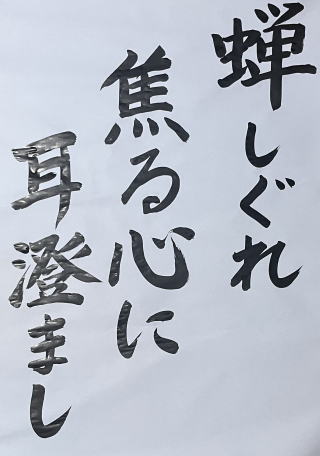 蝉しぐれ
焦る心に
耳澄まし